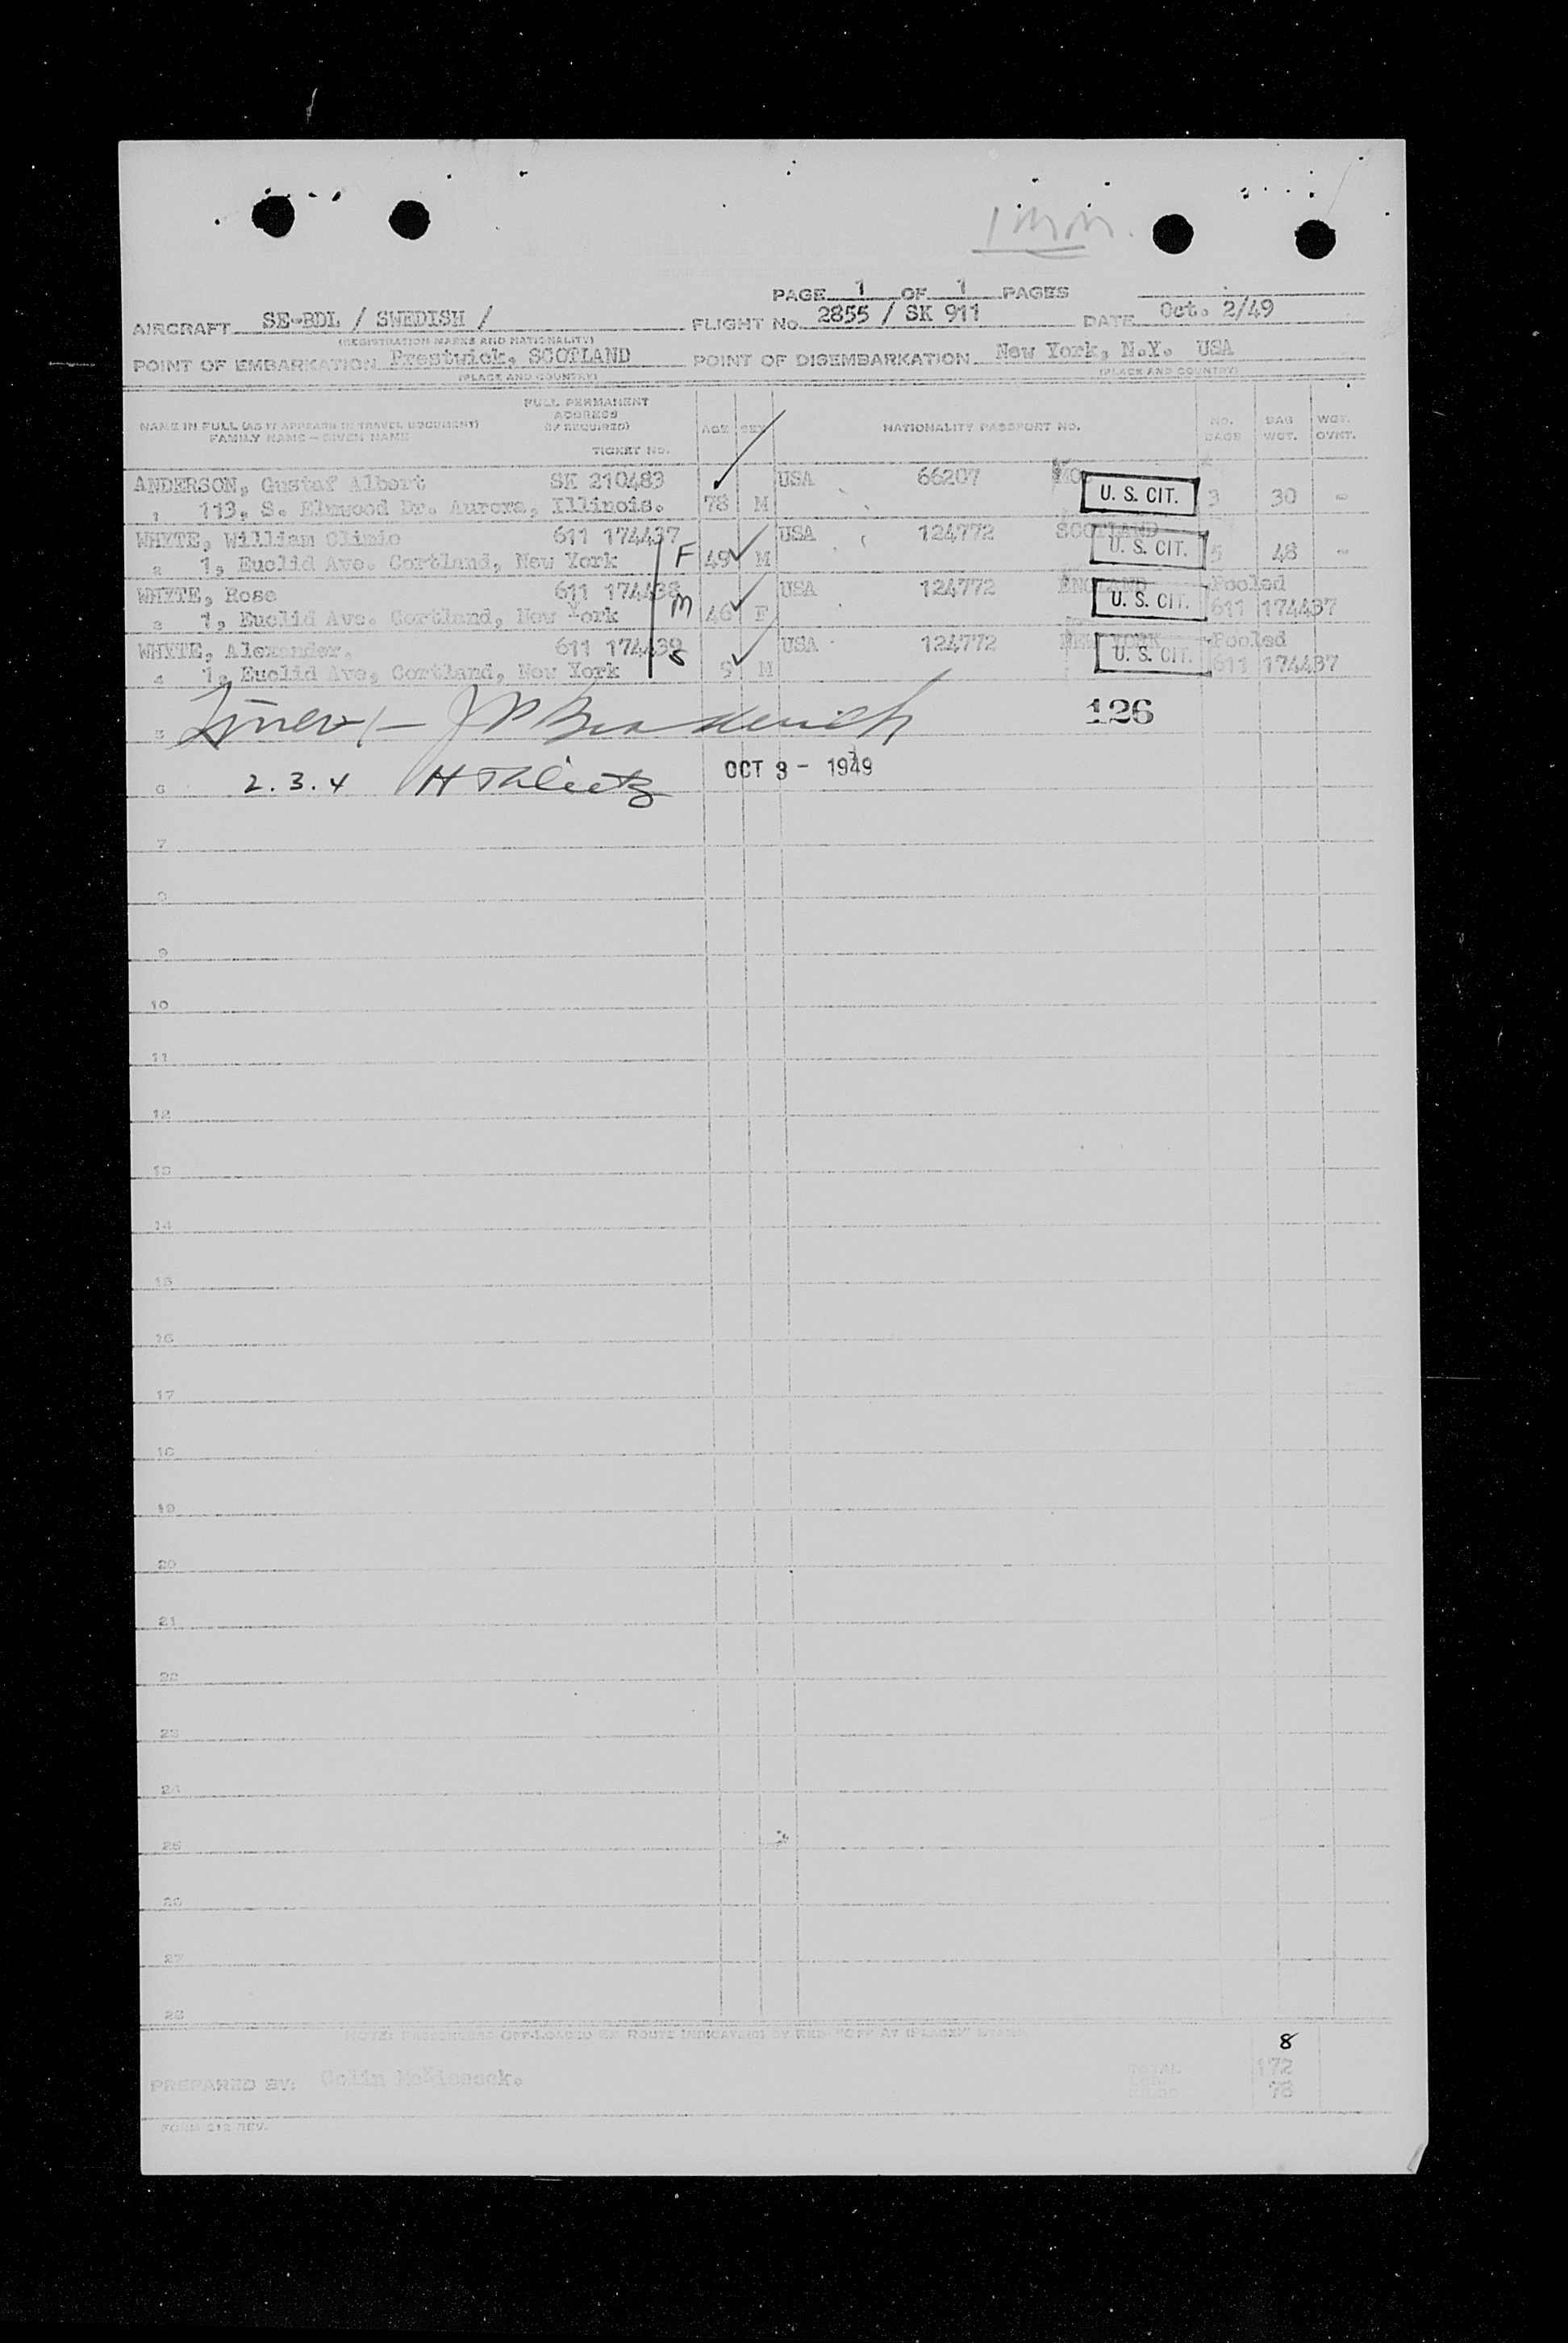 Imm.
PAGE 1 OF 1 PAGES
AIRCRAFT SE-BDL / SWEDISH / FLIGHT No. 2855 / SK 911 DATE Oct. 2/49
(REGISTRATION MARKS AND NATIONALITY)
POINT OF EMBARKATION Prestwick, SCOTLAND POINT OF DISEMBARKATION New York, N.Y. USA
(PLACE AND COUNTRY) (PLACE AND COUNTRY)
NAME IN FULL (AS IT APPEARS IN TRAVEL DOCUMENT)
FAMILY NAME – GIVEN NAME
FULL PERMANENT
ADDRESS
(IF REQUIRED)
TICKET NO.
AGE SEX NATIONALITY PASSPORT NO. NO. BAGS BAG WGT. WGT. OVHT.
ANDERSON, Gustaf Albert SK 210483 USA 66207 U. S. CIT. 3 30 -
1 113, S. Elmwood Dr. Aurora, Illinois. 78 M
WHYTE, William 611 174437 USA 124772 SCOTLAND U. S. CIT. 5 48 -
2 1, Euclid Ave. Cortland, New York F 49 M
WHYTE, Rose 611 174438 USA 124772 ENGLAND U. S. CIT. Pooled
3 1, Euclid Ave. Cortland, New York M 46 F 611 174437
WHYTE, Alexander. 611 174439 USA 124772 NEW YORK U. S. CIT. Pooled
4 1, Euclid Ave, Cortland, New York S 9 M 611 174437
5 126
6 2.3.4 OCT 3 - 1949
7
8
9
10
11
12
13
14
15
16
17
18
19
20
21
22
23
24
25
26
27
28
NOTE: PASSENGERS OFF-LOADED EN ROUTE INDICATED BY RED "OFF AT (PLACE)" STAMP
8
PREPARED BY: Colin TOTAL 172
78
FORM 212 REV.